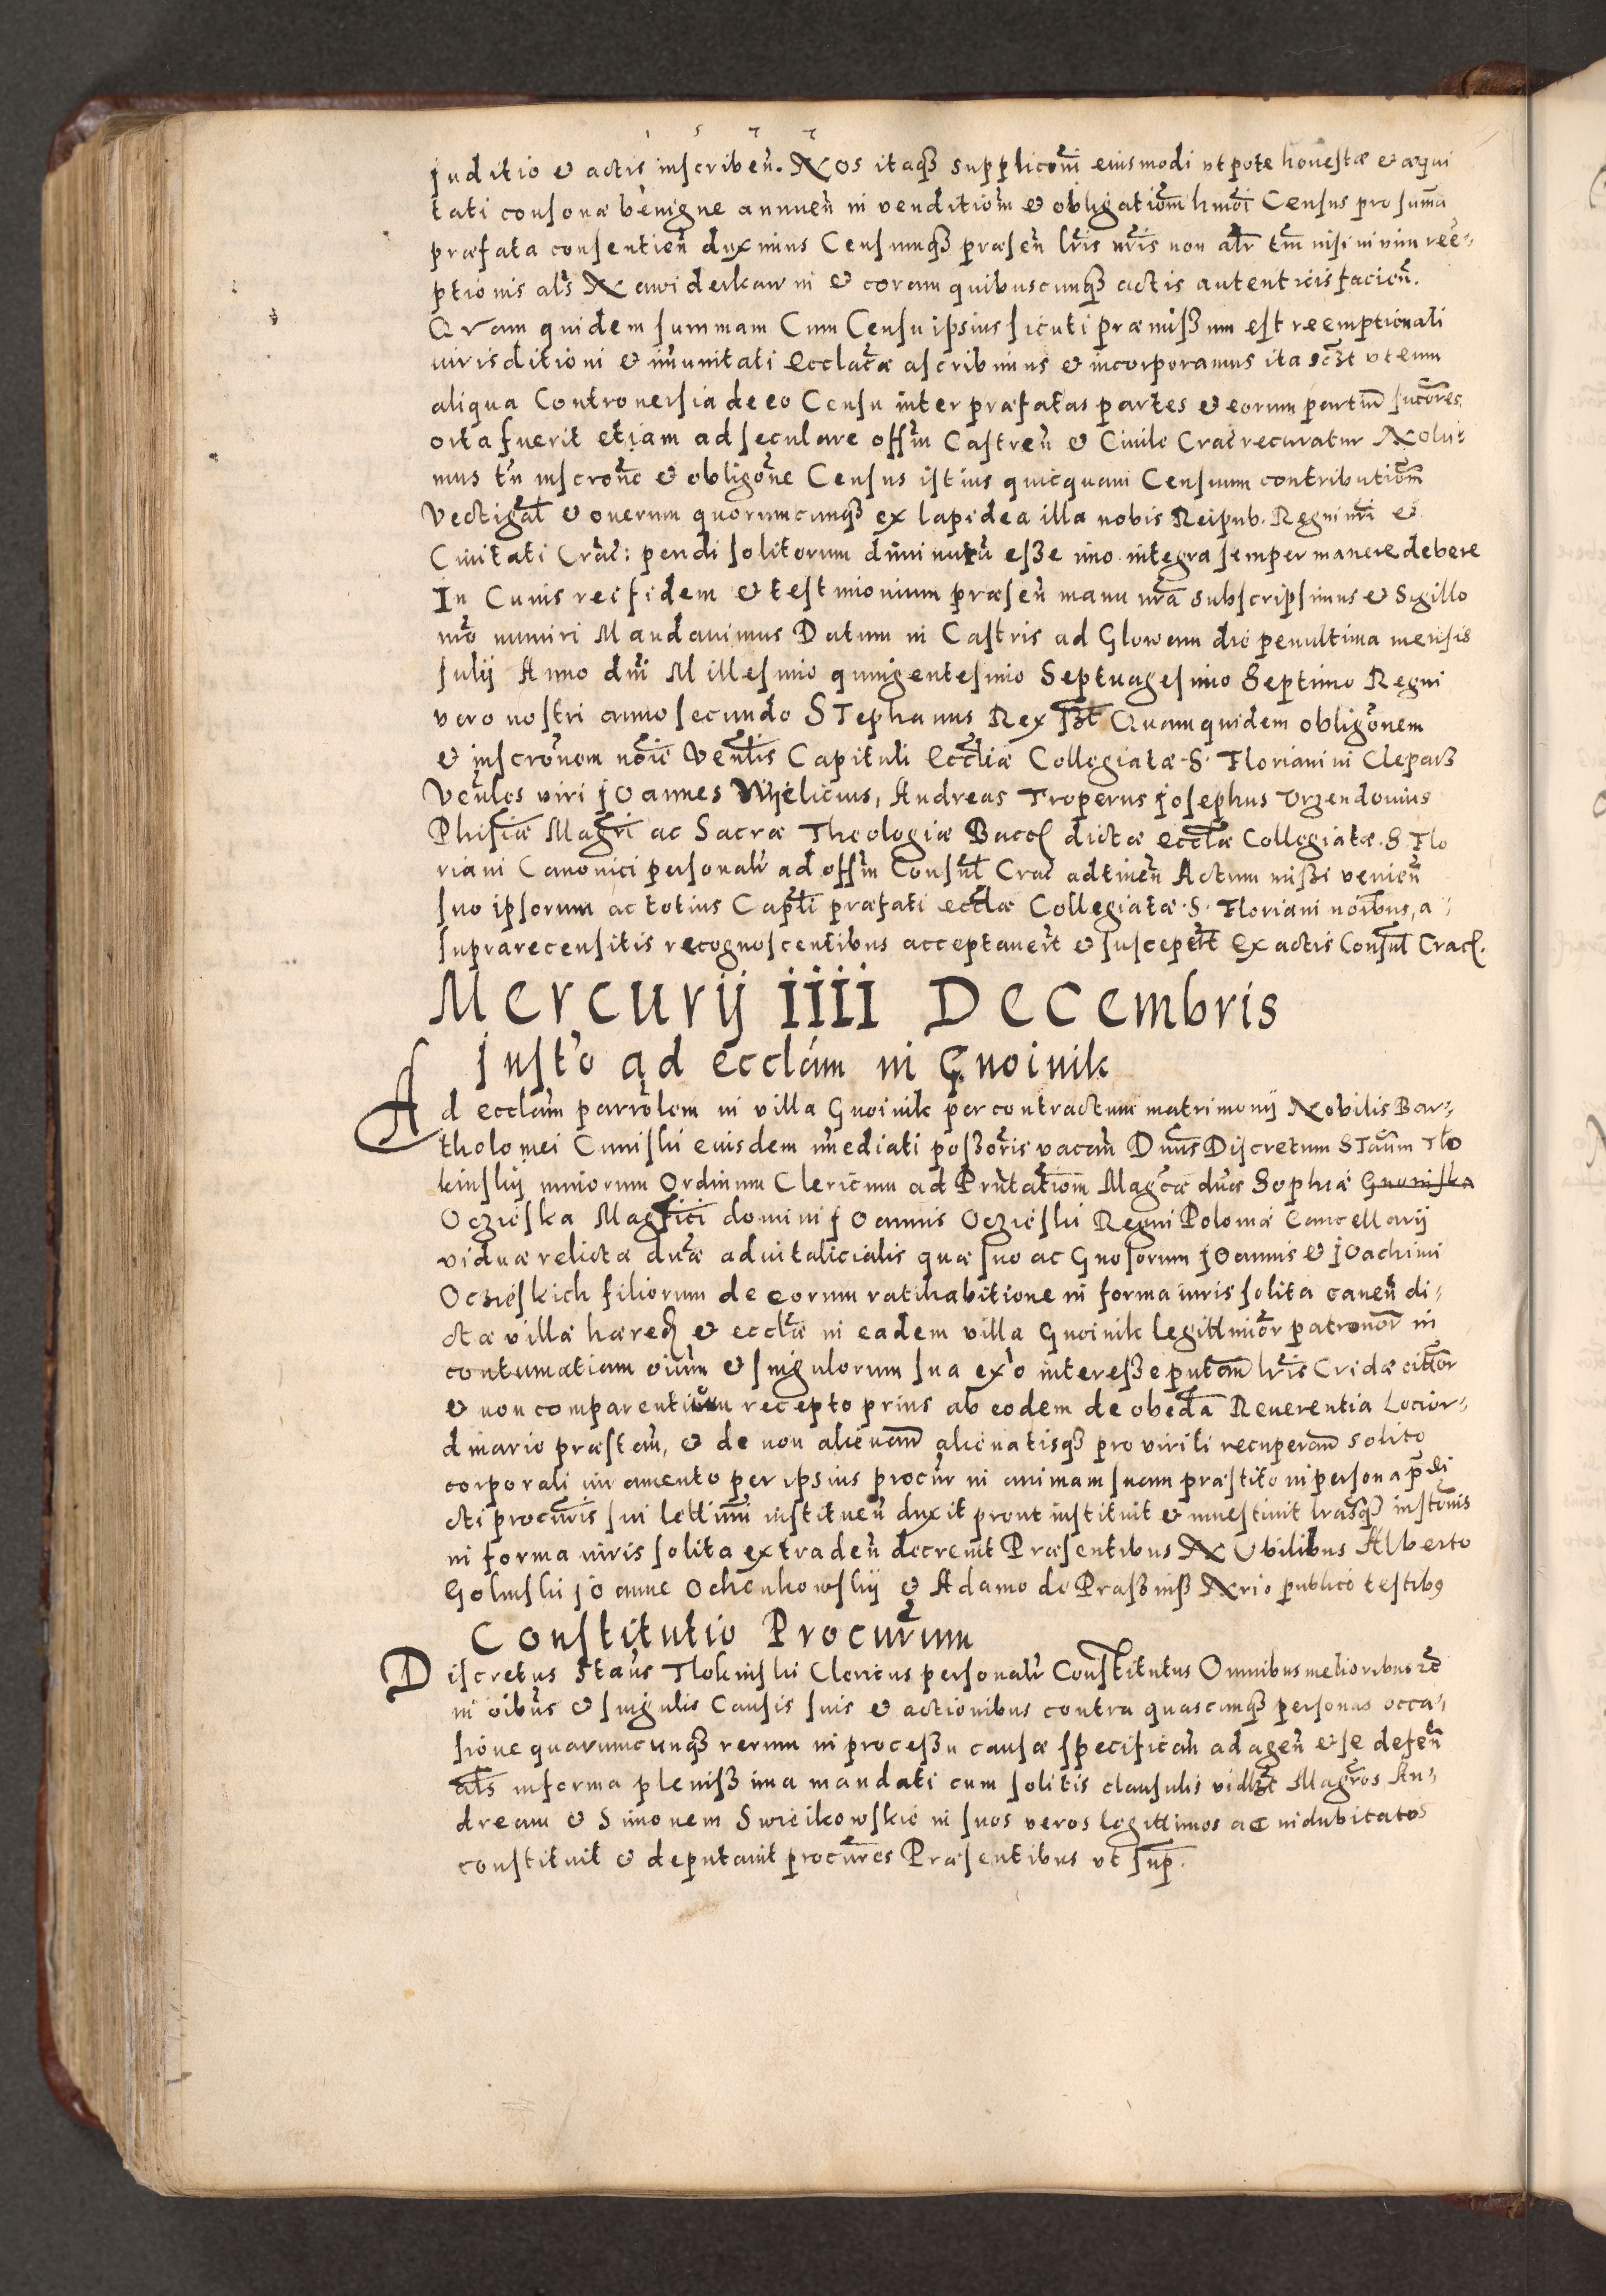 1 5 7 7
Juditio & actis inscribeñ. Nos itaqȝ supplicoñi eiusmodi utpote honestæ & æqui
tati consonæ benigne annueñ in venditioñ & obligatioñ hmõi Census pro sumã
præfata consentieñ duximus Censumqȝ præseñ lr̃is nr̃is non alr̃ tm̃ nisi in vim reë=
ptionis als̃ Na widerkaw in & coram quibuscunqȝ actis autenticis facieñ.
Quam quidem summam Cum Censu ipsius sicuti præmissum est reemptionali
iurisditioni & im̃unitati Ecclãcæ ascribimus & incorporamus ita scȝt ut cum
aliqua Controuersia de eo Censu inter præfatas partes & eorum partiũ succores
orta fuerit etiam ad seculare offm̃ Castreñ & Ciuile Crac̃ recuratur Nolu=
mus tñ inscroñe & obligoñe Census istius quicquam Censuum contributioñ
Vectigal̃ & onerum quorumcunqȝ ex lapidea illa nobis Reipub. Regni nr̃i &
Ciuitati Crac̃: pendi solitorum diminutũ esse imo integra semper manere debere
In Cuius rei fidem & testimonium præseñ manu nr̃a subscripsimus & Sigillo
nr̃o muniri Mandauimus Datum in Castris ad Glowam die penultima mensis
Julij Anno dñi Millesimo quingentesimo Septuagesimo Septimo Regni
vero nostri anno secundo STephanus Rex sȝt Quam quidem obligoñem
& inscroñem noĩe Veñlis Capituli Eccliæ Collegiatæ S. Floriani in Cleparȝ
Veñles viri JOannes Wielicius, Andreas Troperus Josephus Vrzendouius
Phisiæ Magr̃i ac Sacræ Theologiæ Bacc̃ dictæ ecclæ Collegiatæ S. Flo
riani Canonici personalr̃ ad offm̃ Consul̃ Crac̃ adtineñ Actum missi venieñ
suo ipsorum ac totius Capl̃i præfati ecclæ Collegiatæ S. Floriani noĩbus, a=
suprarecensitis recognoscentibus acceptauer̃t & susceper̃t Ex actis Consul̃ Crac̃.
Mercurij IIII Decembris
Just̃o ad ecclãm in Gnoinik
Ad ecclãm parrõlem in villa Gnoinik per contractum matrimonij Nobilis Bar=
tholomei Cuniski eiusdem im̃ediati possor̃is vacañ Dñus Discretum STañm Tlo
kinskij minorum Ordinum Clericum ad Prñtatioñ Magcæ dñæ Sophiæ Gnoniska
Oczieska Magfici domini JOannis Oczieski Regni Poloniæ Cancellarij
viduæ relictæ dñæ aduitalicialis quæ suo ac Gnosorum JOannis & JOachimi
Oczieskich filiorum de eorum ratihabitione in forma iuris solita caueñ di=
ctæ villæ hæred & ecclæ in eadem villa Gnoinik legittimor̃ patronor̃ in
contumatiam oĩum & singulorum sua ex̃o interesse putañ lr̃is Cridæ cittor̃
& non comparentium recepto prius ab eodem de obedã Reuerentia Locior=
dinario præstañ, & de non alienañ alienatisqȝ pro virili recuperañ solito
corporali iuramento per ipsius procũr in animam suam præstito in persona p̃di
cti procũris sui lettimi instituen̄ duxit prout instituit & inuestiuit lrasqȝ instõnis
in forma iuris solita extradeñ decreuit Præsentibus NObilibus Alberto
Golinski JOanne Ochenkowskij & Adamo de Prassniss Nrio publico testibꝯ
Constitutio Procurũm
Discretus Stañs Tlokinski Clericus personalr̃ Constitutus Omnibus melioribus ꝛc̃
in oĩbus & singulis Causis suis & actionibus contra quascunqȝ personas occa=
sione quarumcunqȝ rerum in processu causæ specificañ ad ageñ & se defeñ
als̃ in forma plenissima mandati cum solitis clausulis vidȝt Magros An=
dream & Simonem Swieikowskie in suos veros legittimos ac indubitatos
constituit & deputauit procũres Præsentibus ut sup̃.